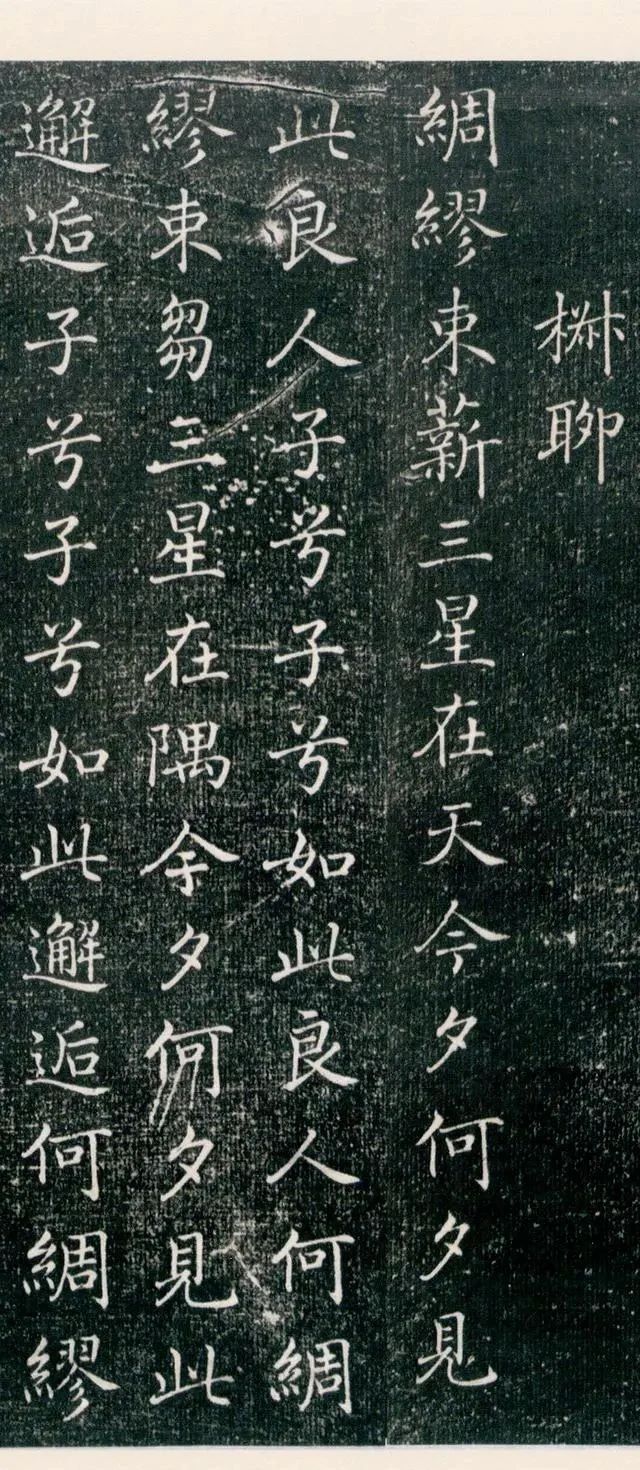 椒聊
綢繆束薪三星在天今夕何夕見
此良人子兮子兮如此良人何綢
繆束芻三星在隅余夕何夕見此
邂逅子兮子兮如此邂逅何綢繆